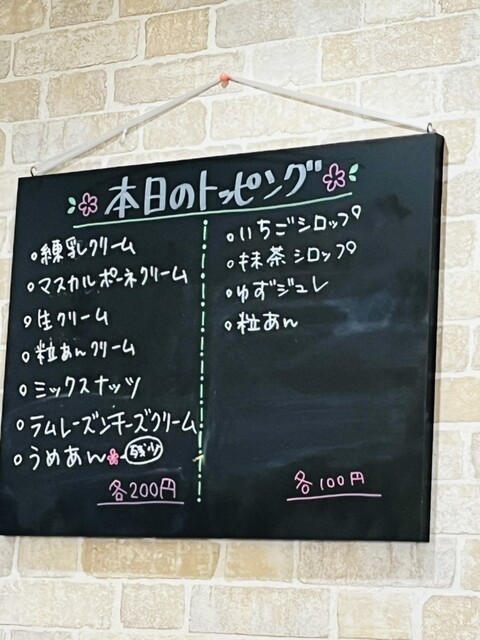 本日のトッピング
○練乳クリーム
○マスカルポーネクリーム
○生クリーム
○粒あんクリーム
○ミックスナッツ
○ラムレーズンチーズクリーム
○うめあん 残少
各200円
○いちごシロップ
○抹茶シロップ
○ゆずジュレ
○粒あん
各100円